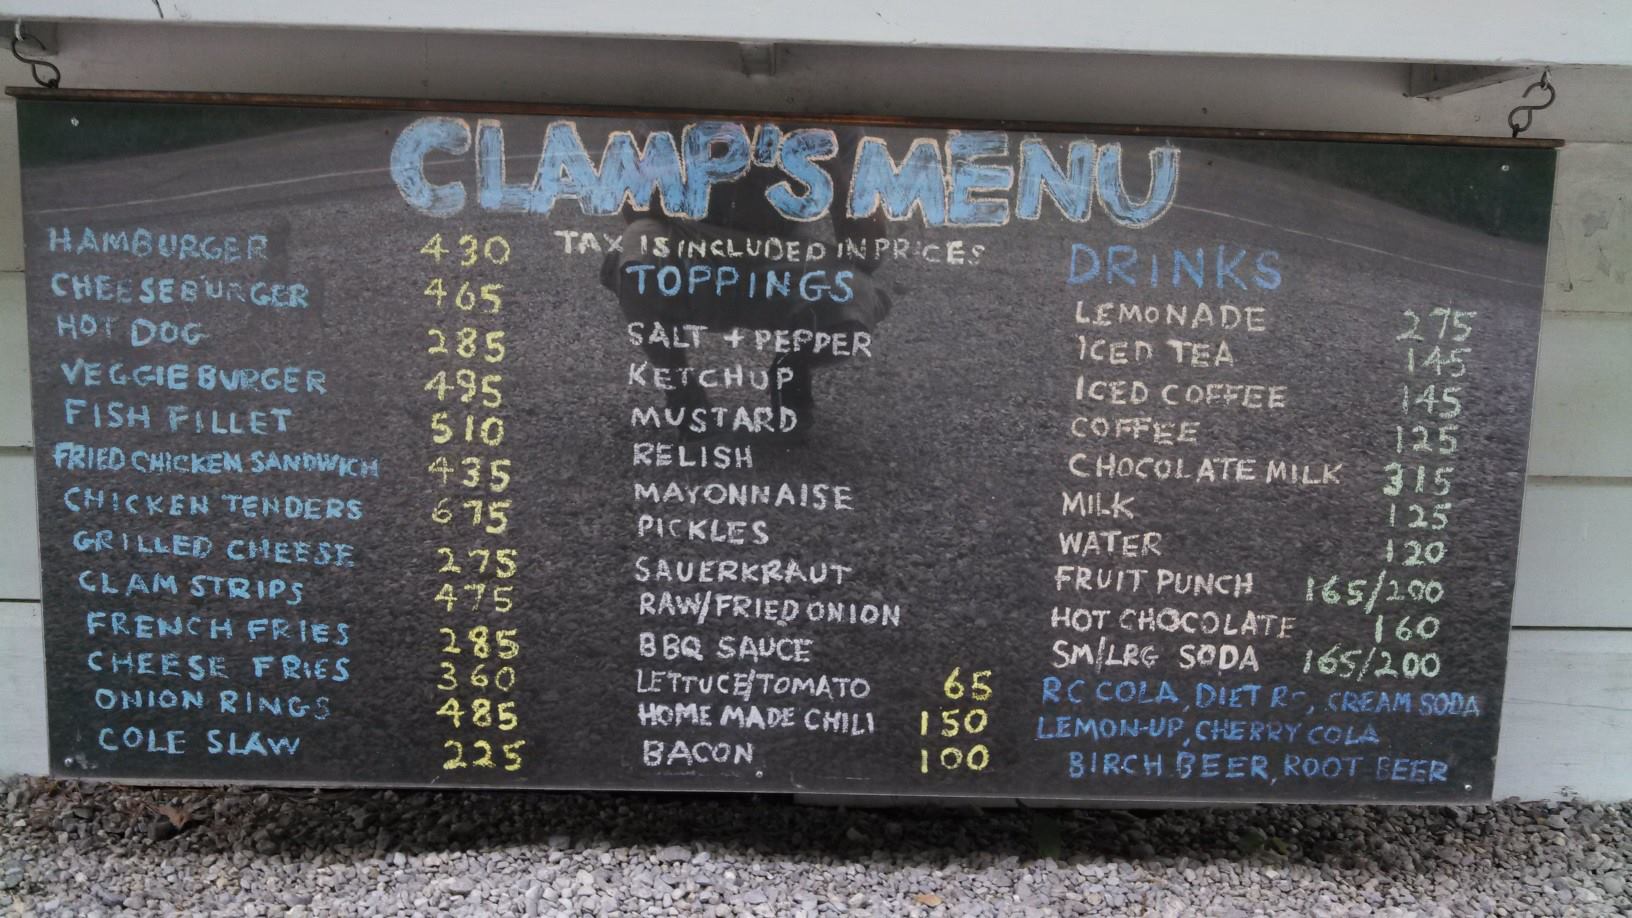 CLAMP'S MENU
TAX IS INCLUDED IN PRICES
HAMBURGER 430
CHEESEBURGER 465
HOT DOG 285
VEGGIE BURGER 495
FISH FILLET 510
FRIED CHICKEN SANDWICH 435
CHICKEN TENDERS 675
GRILLED CHEESE 275
CLAM STRIPS 475
FRENCH FRIES 285
CHEESE FRIES 360
ONION RINGS 485
COLE SLAW 225
TOPPINGS
SALT + PEPPER
KETCHUP
MUSTARD
RELISH
MAYONNAISE
PICKLES
SAUERKRAUT
RAW/FRIED ONION
BBQ SAUCE
LETTUCE/TOMATO 65
HOME MADE CHILI 150
BACON 100
DRINKS
LEMONADE 275
ICED TEA 145
ICED COFFEE 145
COFFEE 125
CHOCOLATE MILK 315
MILK 125
WATER 120
FRUIT PUNCH 165/200
HOT CHOCOLATE 160
SM/LRG SODA 165/200
RC COLA, DIET RC, CREAM SODA
LEMON-UP, CHERRY COLA
BIRCH BEER, ROOT BEER